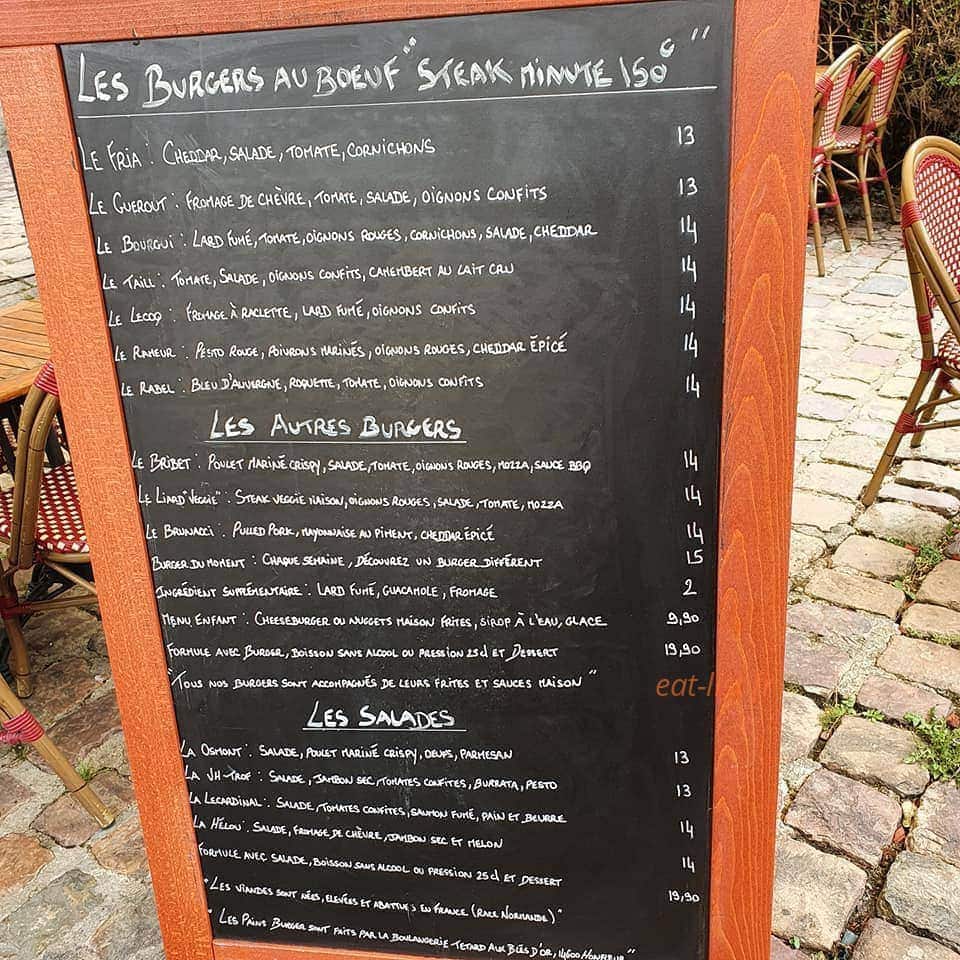 LES BURGERS AU BOEUF "STEAK MINUTE 150G"
LE FRIA : CHEDDAR, SALADE, TOMATE, CORNICHONS 13
LE GUEROUT : FROMAGE DE CHÈVRE, TOMATE, SALADE, OIGNONS CONFITS 13
LE BOURGUI : LARD FUMÉ, TOMATE, OIGNONS ROUGES, CORNICHONS, SALADE, CHEDDAR 14
LE TAILL : TOMATE, SALADE, OIGNONS CONFITS, CAMEMBERT AU LAIT CRU 14
LE LECOQ : FROMAGE À RACLETTE, LARD FUMÉ, OIGNONS CONFITS 14
LE RAMEUR : PESTO ROUGE, POIVRONS MARINÉS, OIGNONS ROUGES, CHEDDAR ÉPICÉ 14
LE RABEL : BLEU D'AUVERGNE, ROQUETTE, TOMATE, OIGNONS CONFITS 14
LES AUTRES BURGERS
LE BRIBET : POULET MARINÉ CRISPY, SALADE, TOMATE, OIGNONS ROUGES, MOZZA, SAUCE BBQ 14
LE LIARD "VEGGIE" : STEAK VEGGIE MAISON, OIGNONS ROUGES, SALADE, TOMATE, MOZZA 14
LE BRUNACCI : PULLED PORK, MAYONNAISE AU PIMENT, CHEDDAR ÉPICÉ 14
BURGER DU MOMENT : CHAQUE SEMAINE, DÉCOUVREZ UN BURGER DIFFÉRENT 15
INGRÉDIENT SUPPLÉMENTAIRE : LARD FUMÉ, GUACAMOLE, FROMAGE 2
MENU ENFANT : CHEESEBURGER OU NUGGETS MAISON FRITES, SIROP À L'EAU, GLACE 9,90
FORMULE AVEC BURGER, BOISSON SANS ALCOOL OU PRESSION 25cl ET DESSERT 19,90
"TOUS NOS BURGERS SONT ACCOMPAGNÉS DE LEURS FRITES ET SAUCES MAISON"
LES SALADES
LA OSMONT : SALADE, POULET MARINÉ CRISPY, OEUFS, PARMESAN 13
LA JH-TROF : SALADE, JAMBON SEC, TOMATES CONFITES, BURRATA, PESTO 13
LA LECARDINAL : SALADE, TOMATES CONFITES, SAUMON FUMÉ, PAIN ET BEURRE 14
LA HÉLOU : SALADE, FROMAGE DE CHÈVRE, JAMBON SEC ET MELON 14
FORMULE AVEC SALADE, BOISSON SANS ALCOOL OU PRESSION 25cl ET DESSERT 19,90
"LES VIANDES SONT NÉES, ELEVÉES ET ABATTUES EN FRANCE (RACE NORMANDE)"
"LES PAINS BURGER SONT FAITS PAR LA BOULANGERIE TETARD AUX BLÉS D'OR, 14600 HONFLEUR"